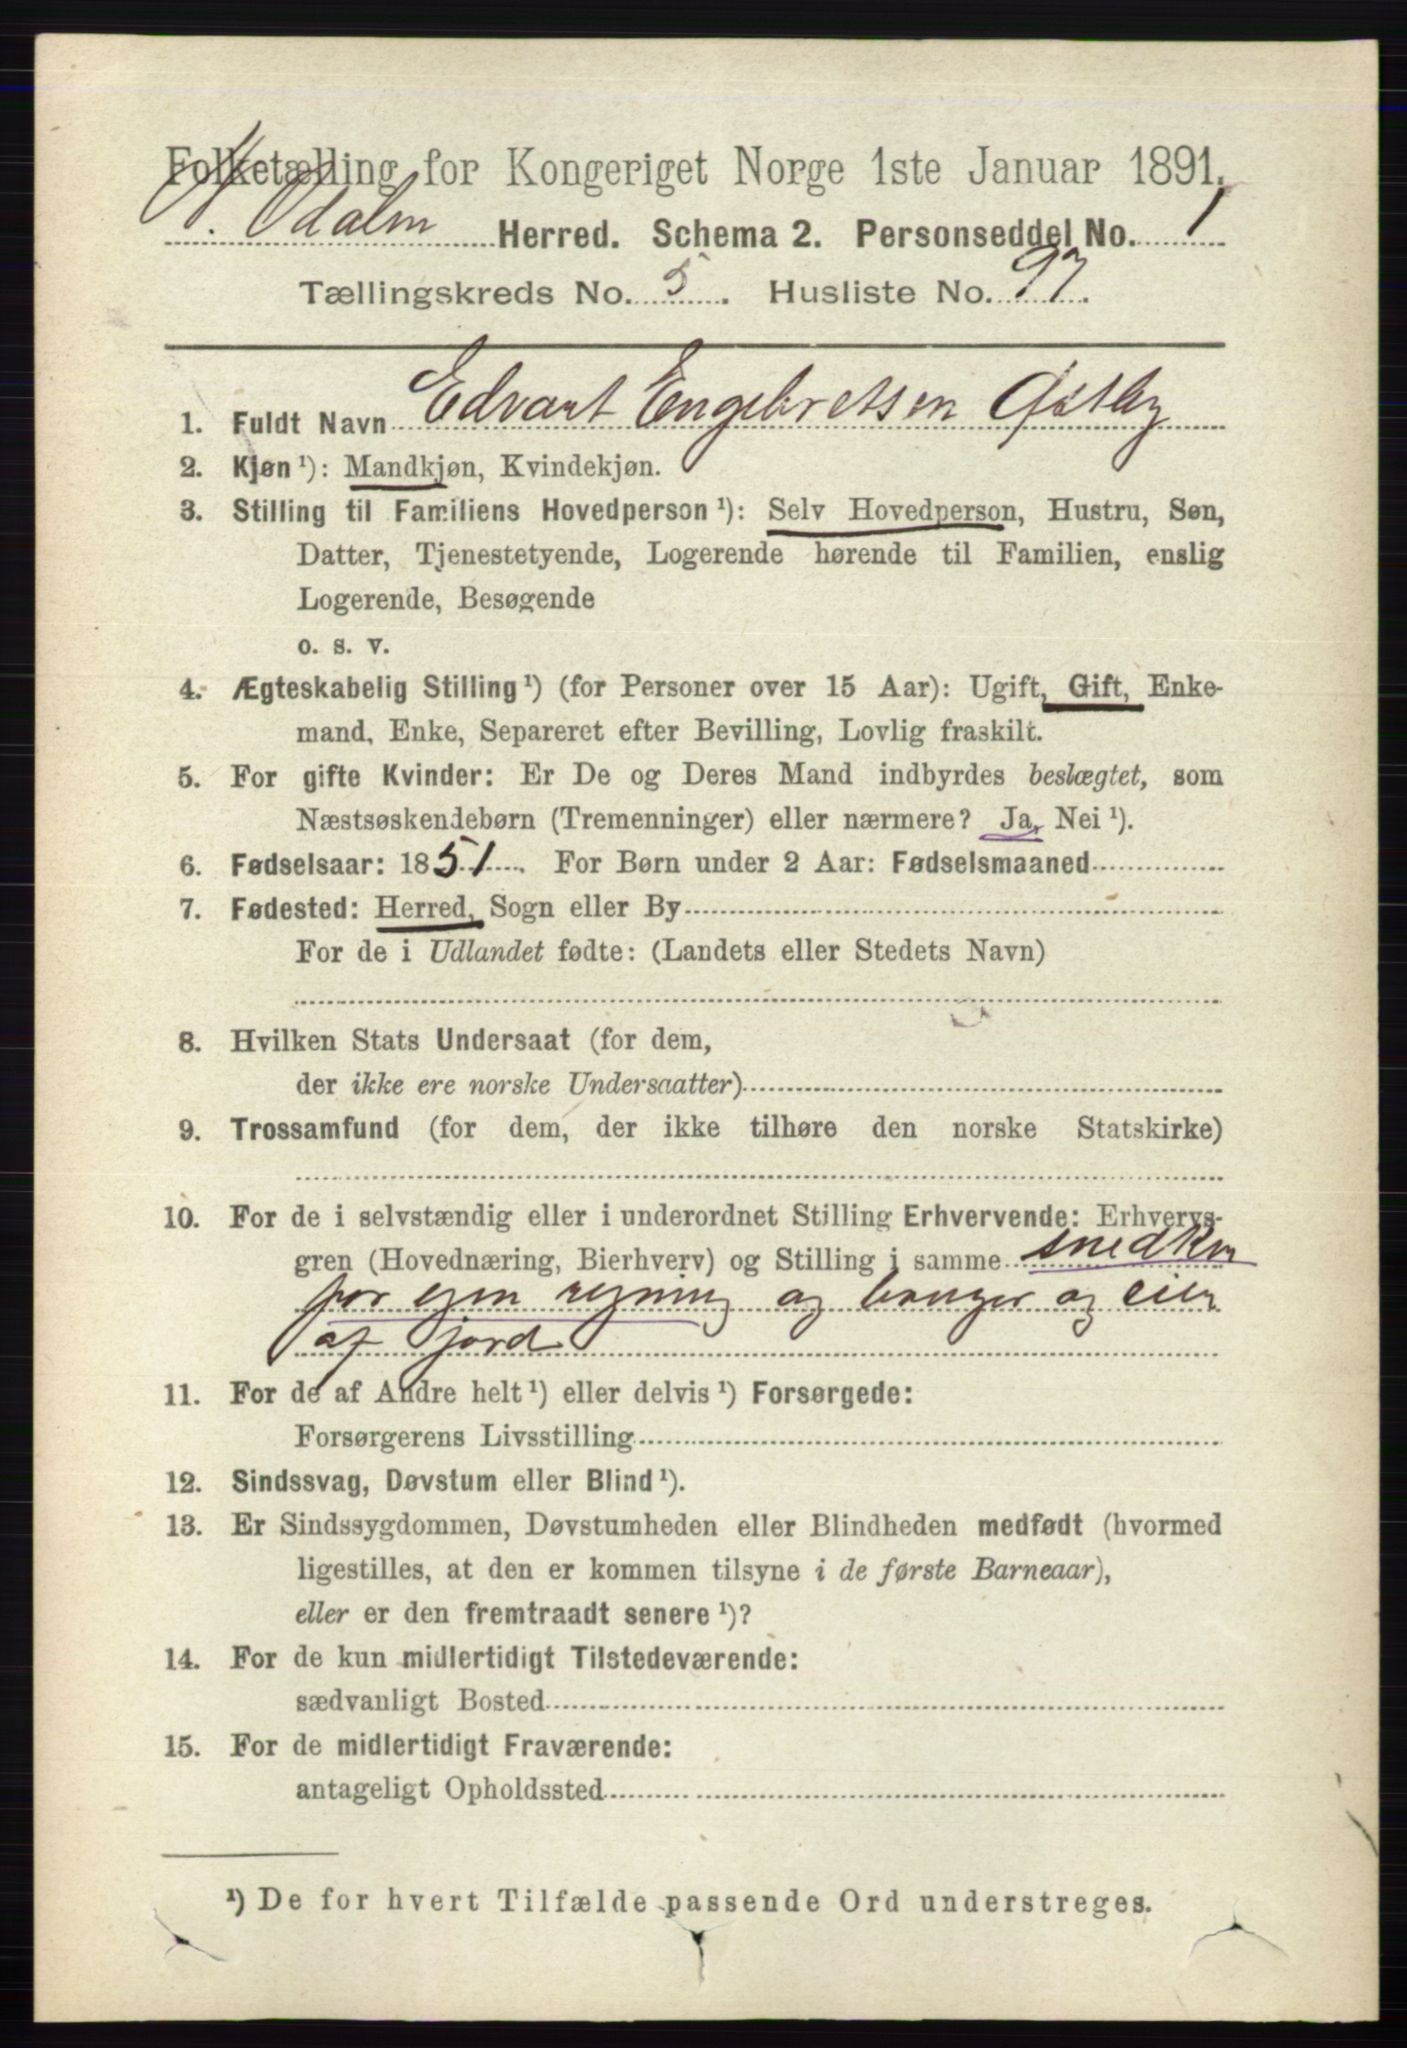 Folketælling for Kongeriget Norge 1ste Januar 1891.
N. Odalen Herred. Schema 2. Personseddel No. 1
Tællingskreds No. 5. Husliste No. 97.
1. Fuldt Navn Edvart Engebretsen Østby
2. Kjøn ¹): Mandkjøn, Kvindekjøn.
3. Stilling til Familiens Hovedperson ¹): Selv Hovedperson, Hustru, Søn,
Datter, Tjenestetyende, Logerende hørende til Familien, enslig
Logerende, Besøgende
o. s. v.
4. Ægteskabelig Stilling ¹) (for Personer over 15 Aar): Ugift, Gift, Enke-
mand, Enke, Separeret efter Bevilling, Lovlig fraskilt.
5. For gifte Kvinder: Er De og Deres Mand indbyrdes beslægtet, som
Næstsøskendebørn (Tremenninger) eller nærmere? Ja, Nei ¹).
6. Fødselsaar: 1851. For Børn under 2 Aar: Fødselsmaaned
7. Fødested: Herred, Sogn eller By
For de i Udlandet fødte: (Landets eller Stedets Navn)
8. Hvilken Stats Undersaat (for dem,
der ikke ere norske Undersaatter)
9. Trossamfund (for dem, der ikke tilhøre den norske Statskirke)
10. For de i selvstændig eller i underordnet Stilling Erhvervende: Erhvervs-
gren (Hovednæring, Bierhverv) og Stilling i samme snedker
for egen regning og bruger og eier
af jord
11. For de af Andre helt ¹) eller delvis ¹) Forsørgede:
Forsørgerens Livsstilling
12. Sindssvag, Døvstum eller Blind ¹).
13. Er Sindssygdommen, Døvstumheden eller Blindheden medfødt (hvormed
ligestilles, at den er kommen tilsyne i de første Barneaar),
eller er den fremtraadt senere ¹)?
14. For de kun midlertidigt Tilstedeværende:
sædvanligt Bosted
15. For de midlertidigt Fraværende:
antageligt Opholdssted
¹) De for hvert Tilfælde passende Ord understreges.